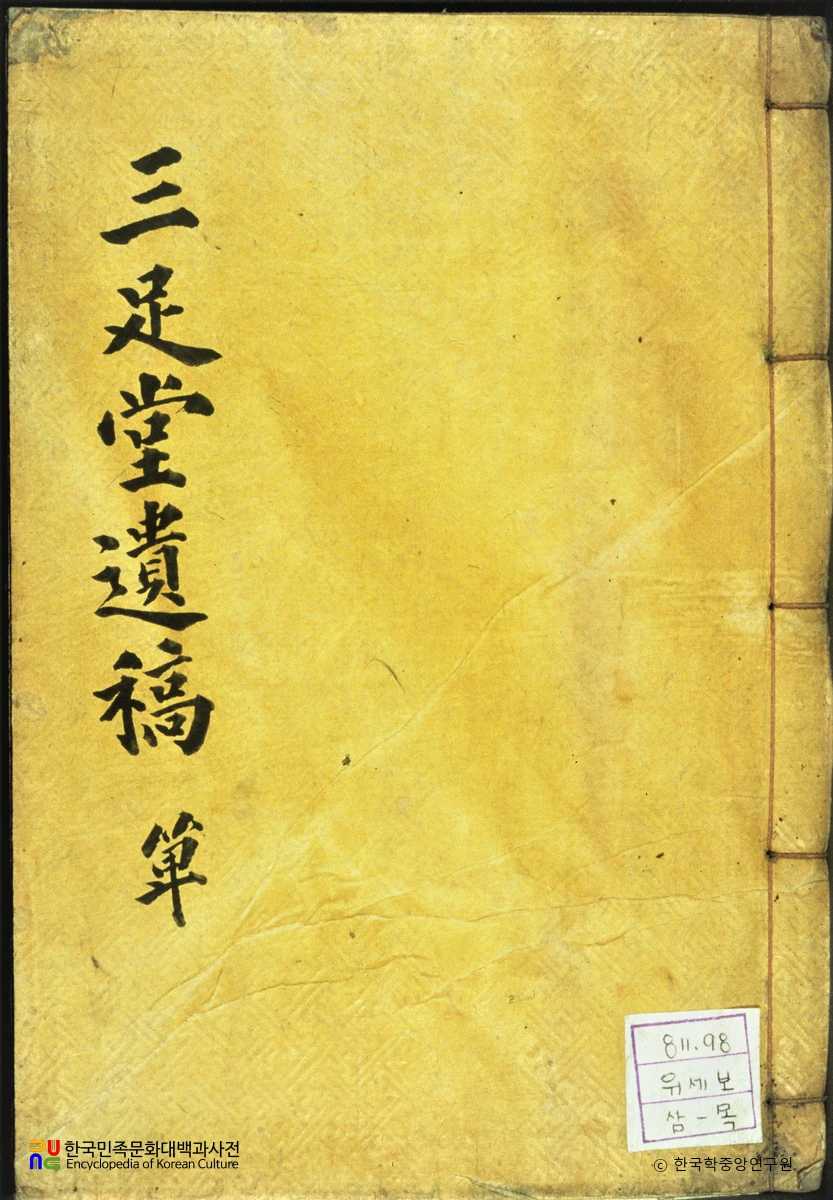 三足堂遺稿 單
811.98
위세보
삼-목
한국민족문화대백과사전
Encyclopedia of Korean Culture
ⓒ 한국학중앙연구원